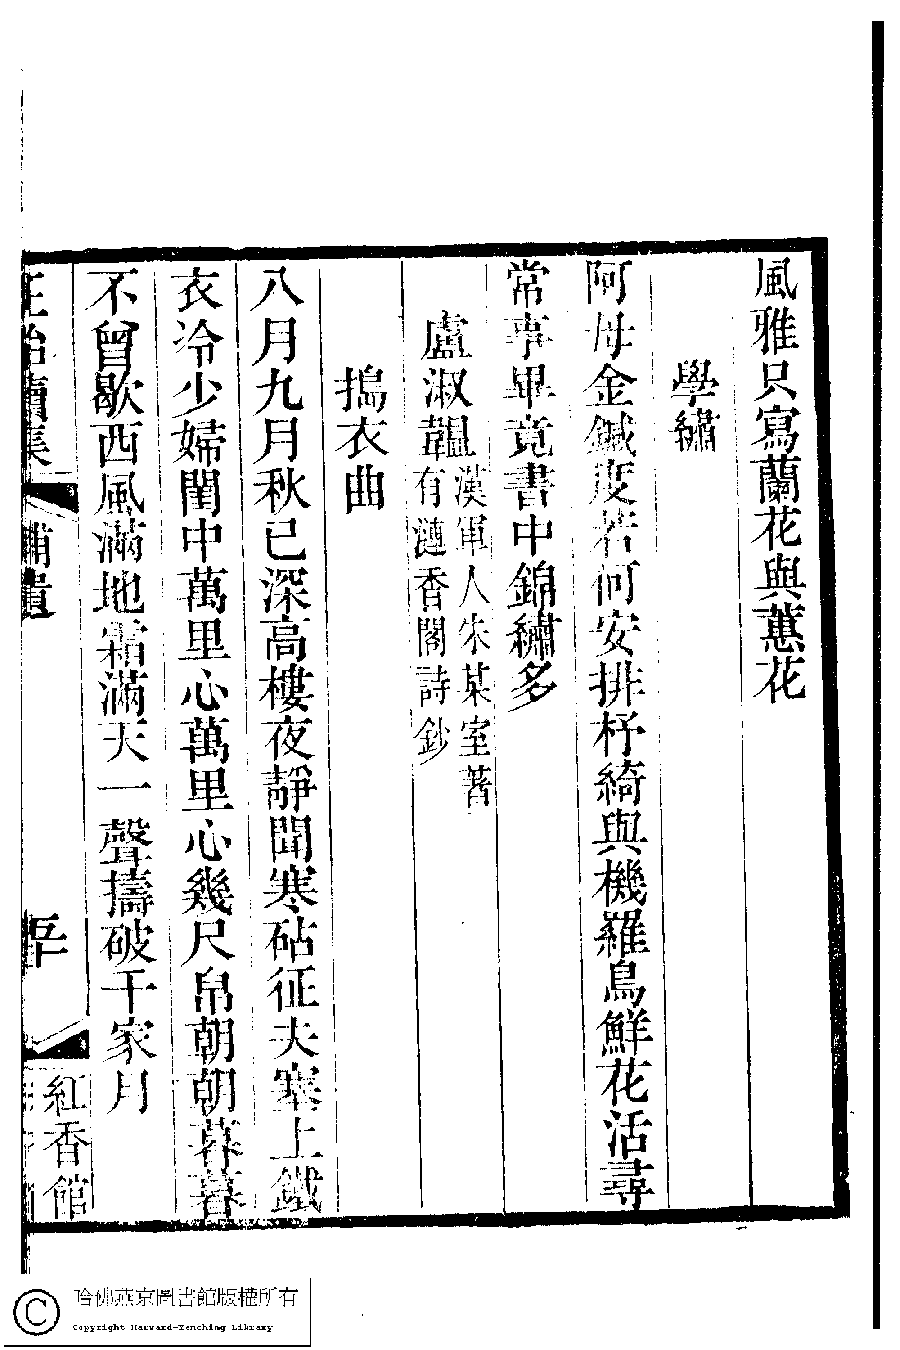 風雅只寫蘭花與蕙花
學繡
阿母金鍼度若何安排杼綺與機羅鳥鮮花活尋
常事畢竟書中錦繡多
盧淑韞漢軍人朱某室著
有漣香閣詩鈔
搗衣曲
八月九月秋已深高樓夜靜聞寒砧征夫塞上鐵
衣冷少婦閨中萬里心萬里心幾尺帛朝朝暮暮
不曾歇西風滿地霜滿天一聲擣破千家月
正始續集
補遺
紅香館
哈佛燕京圖書館版權所有
Copyright Harvard-Yenching Library